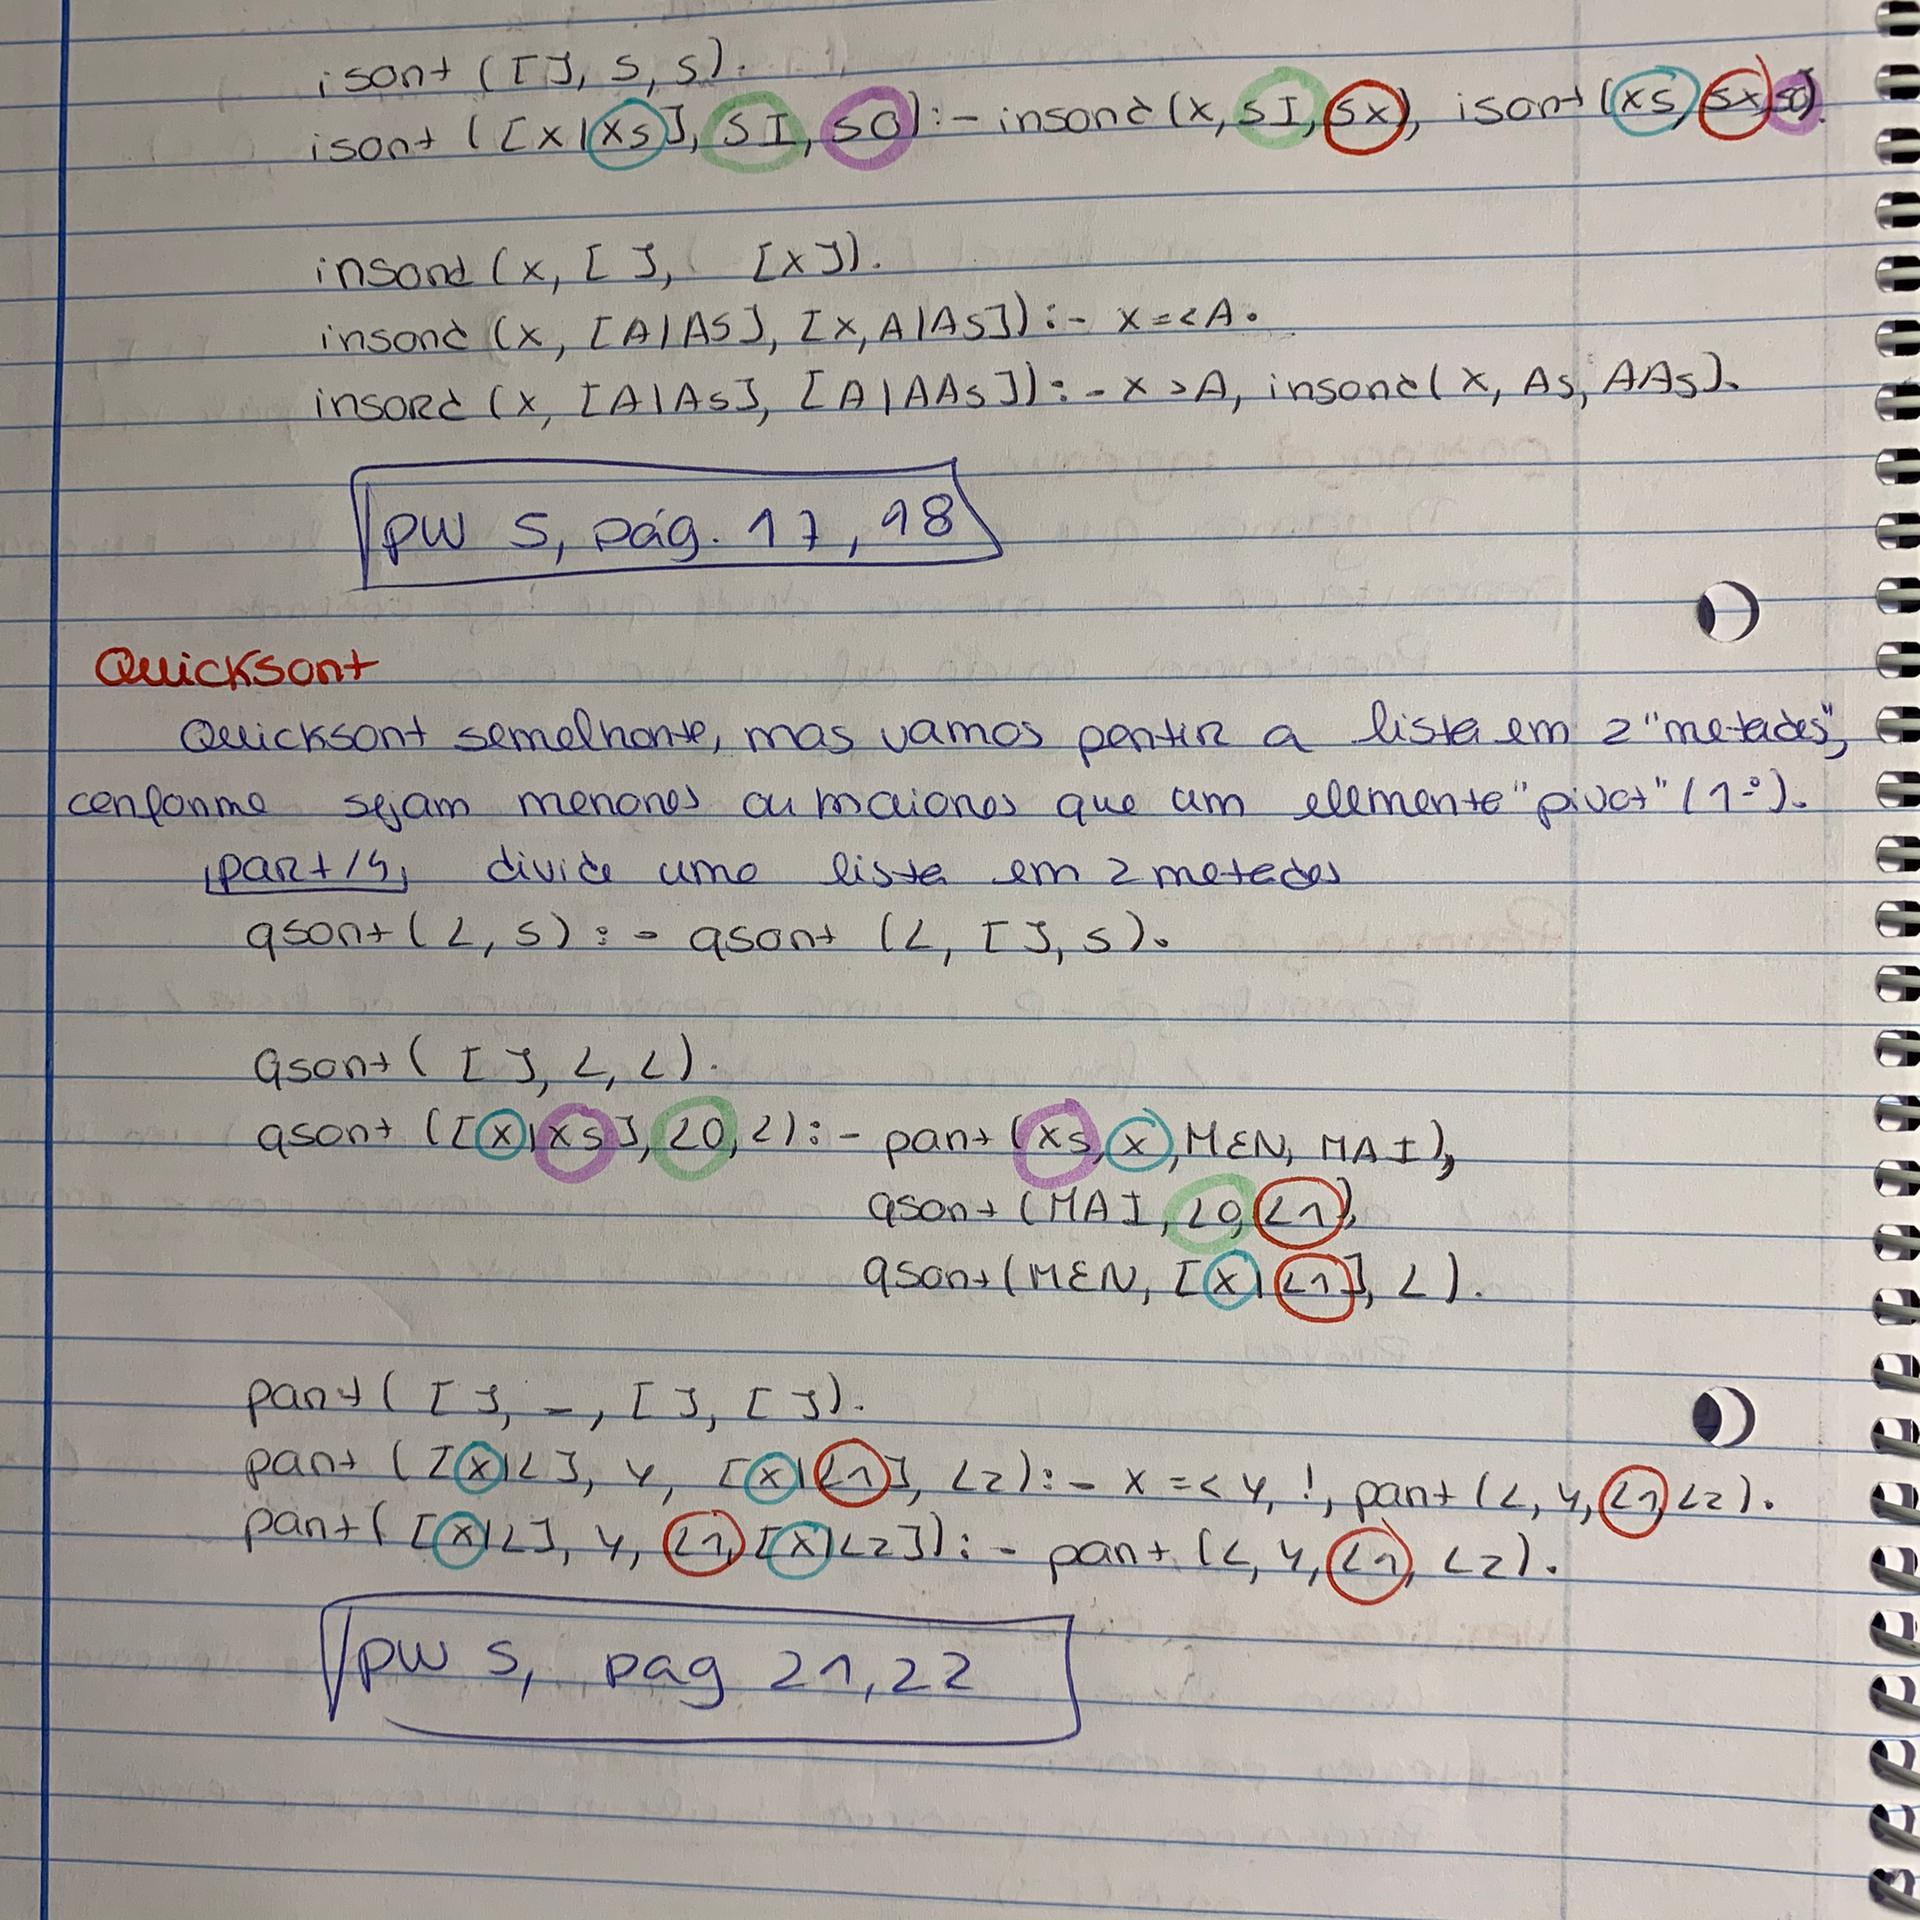 isort ([], S, S).
isort ([X|Xs], SI, SO):- insord(X, SI, SX), isort(Xs, SX, SO).
insord (X, [ ], [X]).
insord (X, [A|As], [X,A|As]):- X=<A.
insord (X, [A|As], [A|AAs]):- X>A, insord(X, As, AAs).
PW 5, pág. 17, 18
Quicksort
Quicksort semelhante, mas vamos partir a lista em 2 "metades",
conforme sejam menores ou maiores que um elemento "pivot" (1º).
part/4, divide uma lista em 2 metades
qsort(L, S):- qsort (L, [], S).
qsort( [], L, L).
qsort ([X|Xs], L0, L):- part(Xs, X, MEN, MAI),
qsort (MAI, L0, L1),
qsort(MEN, [X|L1], L).
part( [], _, [], []).
part ([X|L], Y, [X|L1], L2):- X=<Y, !, part (L, Y, L1, L2).
part( [X|L], Y, L1, [X|L2]):- part (L, Y, L1, L2).
PW 5, pag 21, 22